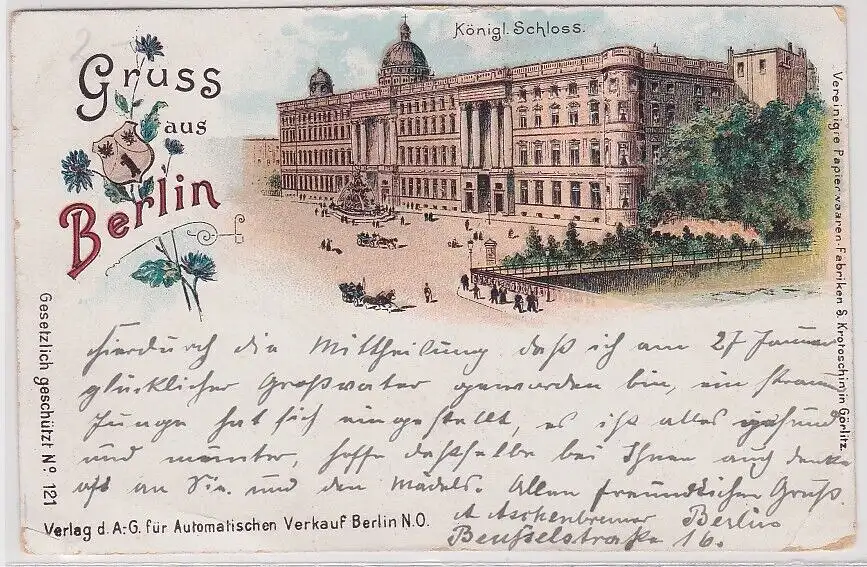 Königl. Schloss.
Gruss
aus
Berlin
1
Vereinigte Papierwaaren-Fabriken S. Krotoschin in Görlitz.
Gesetzlich geschützt No. 121
hierdurch die Mittheilung daß ich am 27 Januar
glücklicher Großvater geworden bin, ein stram
Junge hat sich eingestellt, es ist alles gesund
und munter, hoffe dasselbe bei Ihnen auch denke
oft an Sie. und den Mädels. Allen freundlichen Gruß
A Aschenbrenner Berlin
Beusselstraße 16.
Verlag d. A.-G. für Automatischen Verkauf Berlin N.O.
2